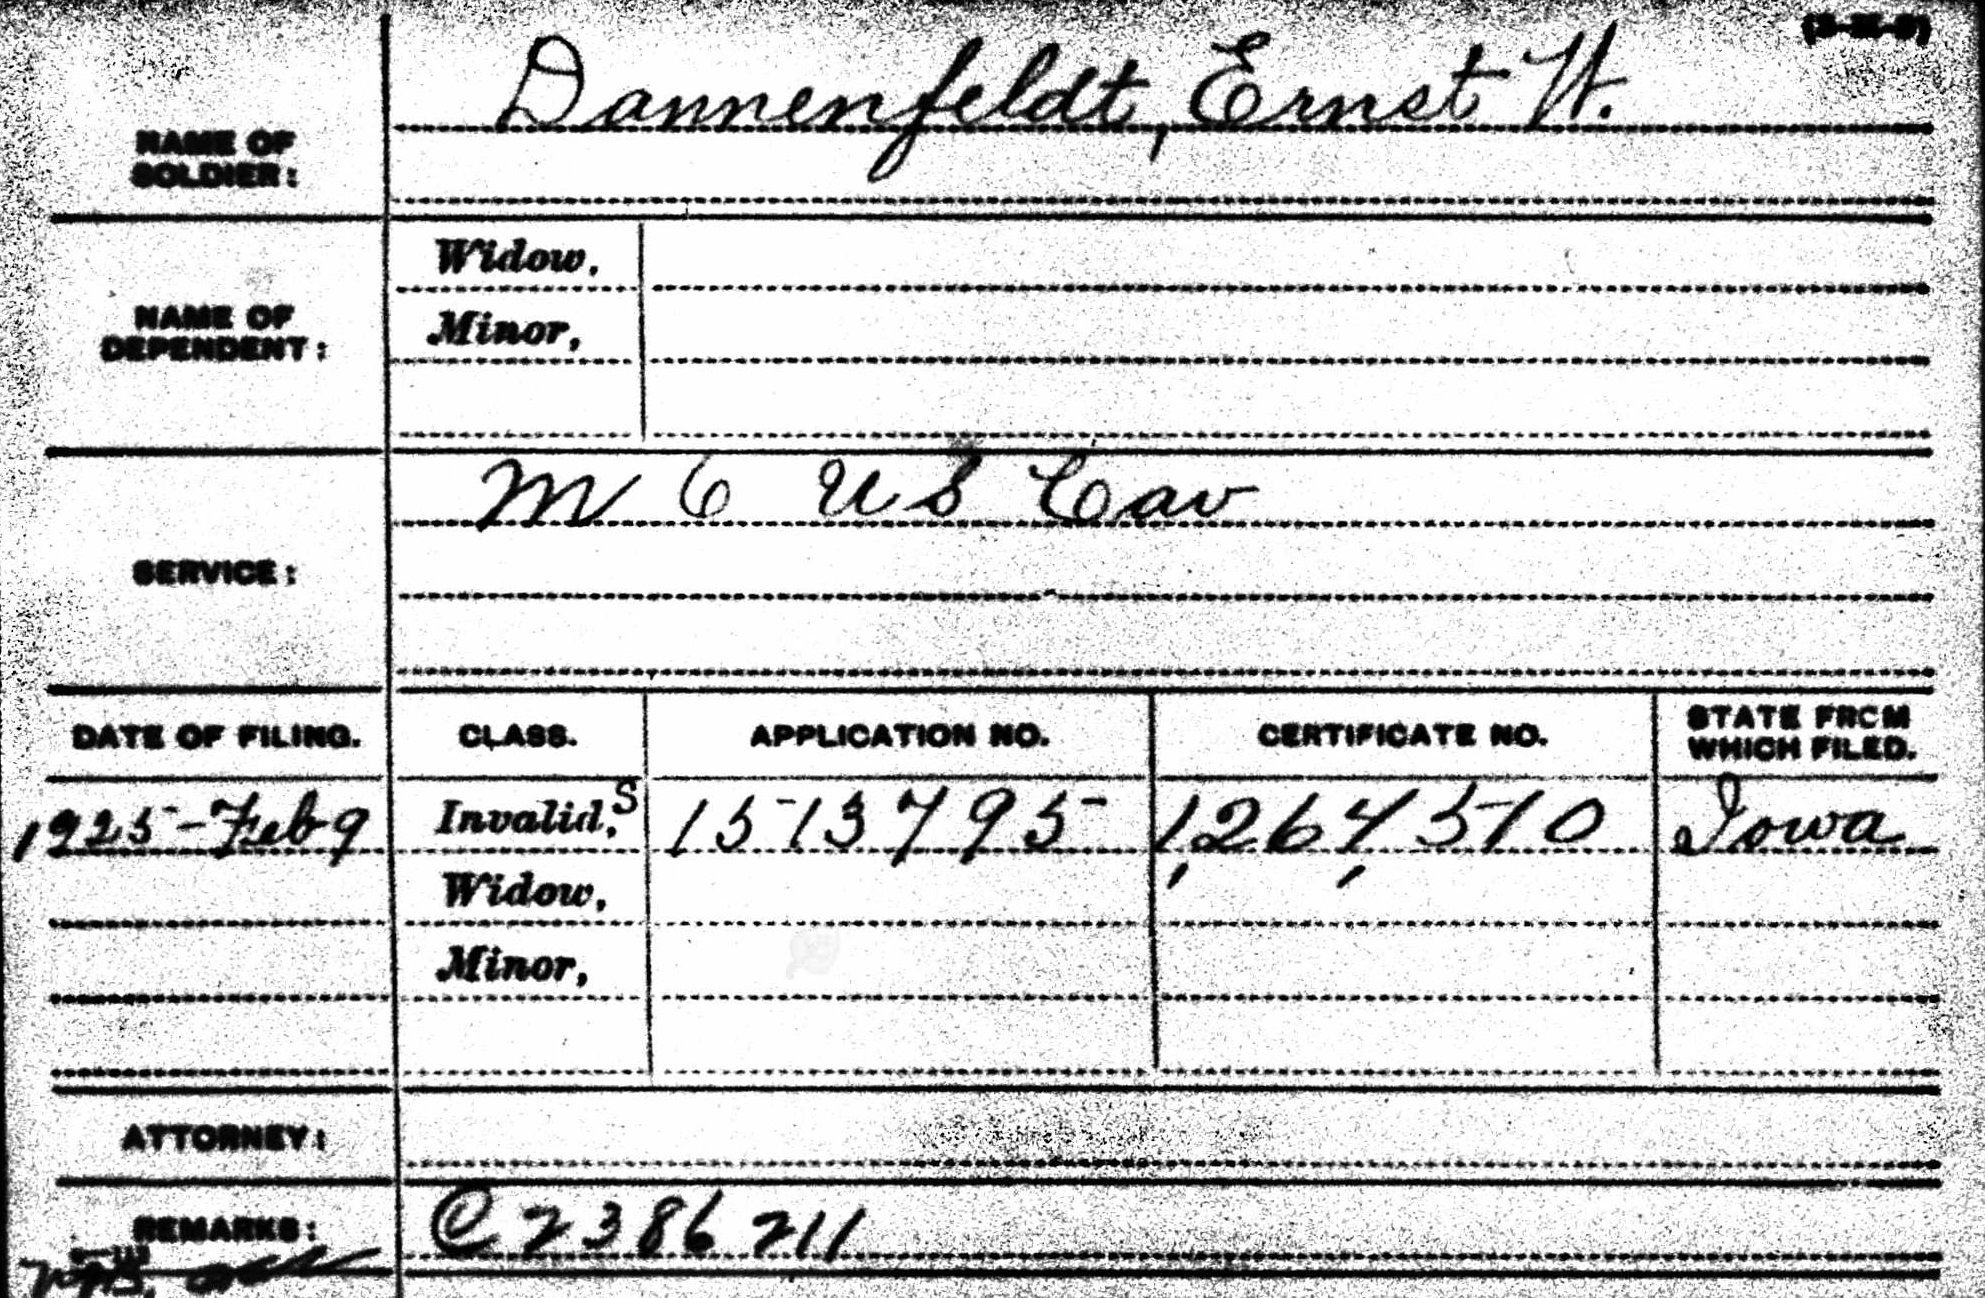 Dannenfeldt, Ernst W.
NAME OF
SOLDIER:
Widow,
NAME OF
DEPENDENT:
Minor,
M 6 U S Cav
SERVICE:
DATE OF FILING. CLASS. APPLICATION NO. CERTIFICATE NO. STATE FROM
WHICH FILED.
1925-Feb 9 Invalid, S 1513795 1,264,510 Iowa
Widow,
Minor,
ATTORNEY:
REMARKS: C 2386211